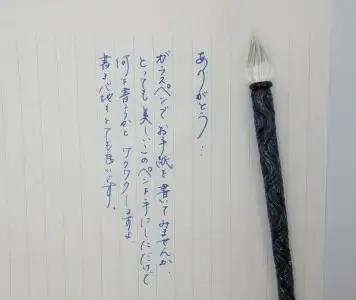 ありがとう…
ガラスペンでお手紙を書いてみませんか
とっても美しいこのペンを手にしただけで
何を書こうかとワクワクしますよ
書き心地もとても良いです。